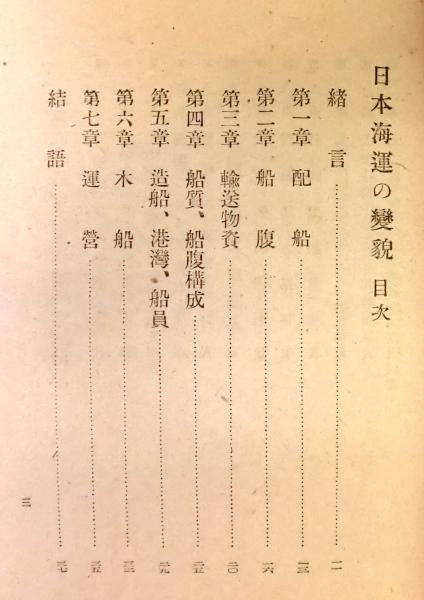 日本海運の變貌 目次
緒言……一一
第一章 配船……一三
第二章 船腹……一六
第三章 輸送物資……二〇
第四章 船質、船腹構成……二五
第五章 造船、港灣、船員……二九
第六章 木船……三三
第七章 運營……三五
結語……三七
三